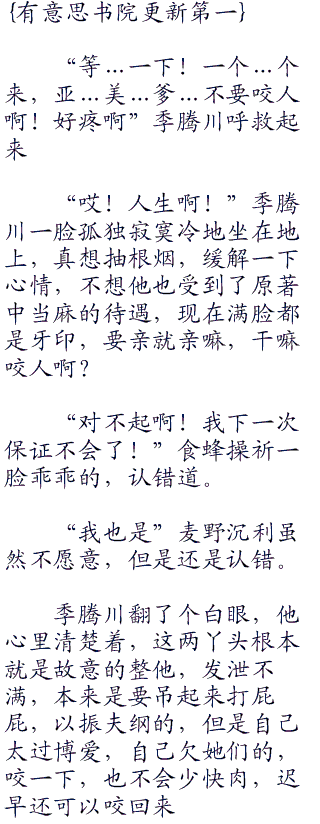 {有意思书院更新第一}
“等…一下！一个…个
来，亚…美…爹…不要咬人
啊！好疼啊”季腾川呼救起
来
“哎！人生啊！”季腾
川一脸孤独寂寞冷地坐在地
上，真想抽根烟，缓解一下
心情，不想他也受到了原著
中当麻的待遇，现在满脸都
是牙印，要亲就亲嘛，干嘛
咬人啊？
“对不起啊！我下一次
保证不会了！”食蜂操祈一
脸乖乖的，认错道。
“我也是”麦野沉利虽
然不愿意，但是还是认错。
季腾川翻了个白眼，他
心里清楚着，这两丫头根本
就是故意的整他，发泄不
满，本来是要吊起来打屁
屁，以振夫纲的，但是自己
太过博爱，自己欠她们的，
咬一下，也不会少快肉，迟
早还可以咬回来